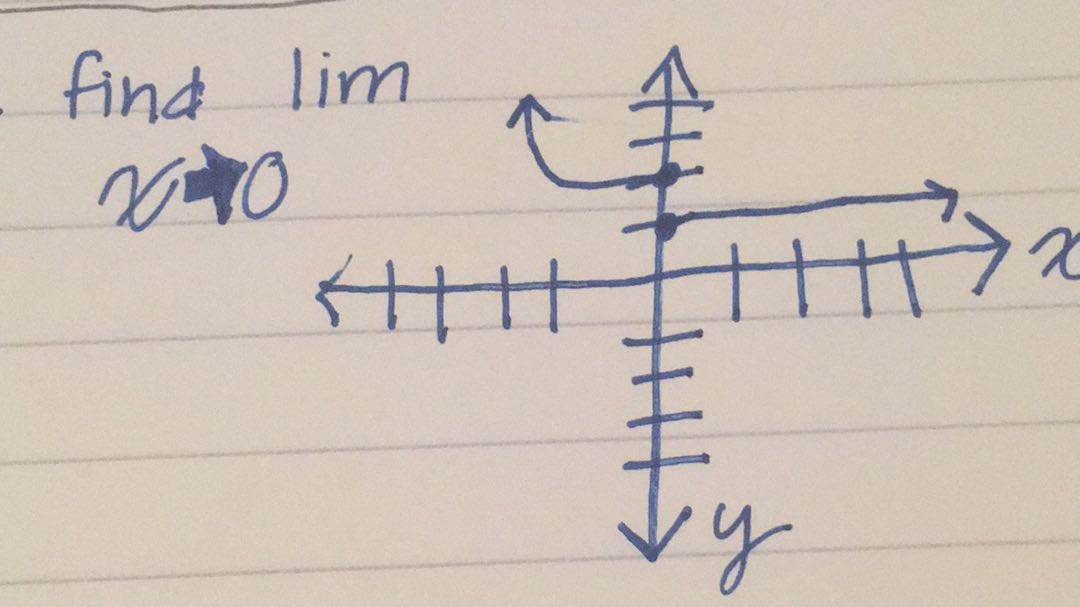 find lim
x→0
x
y